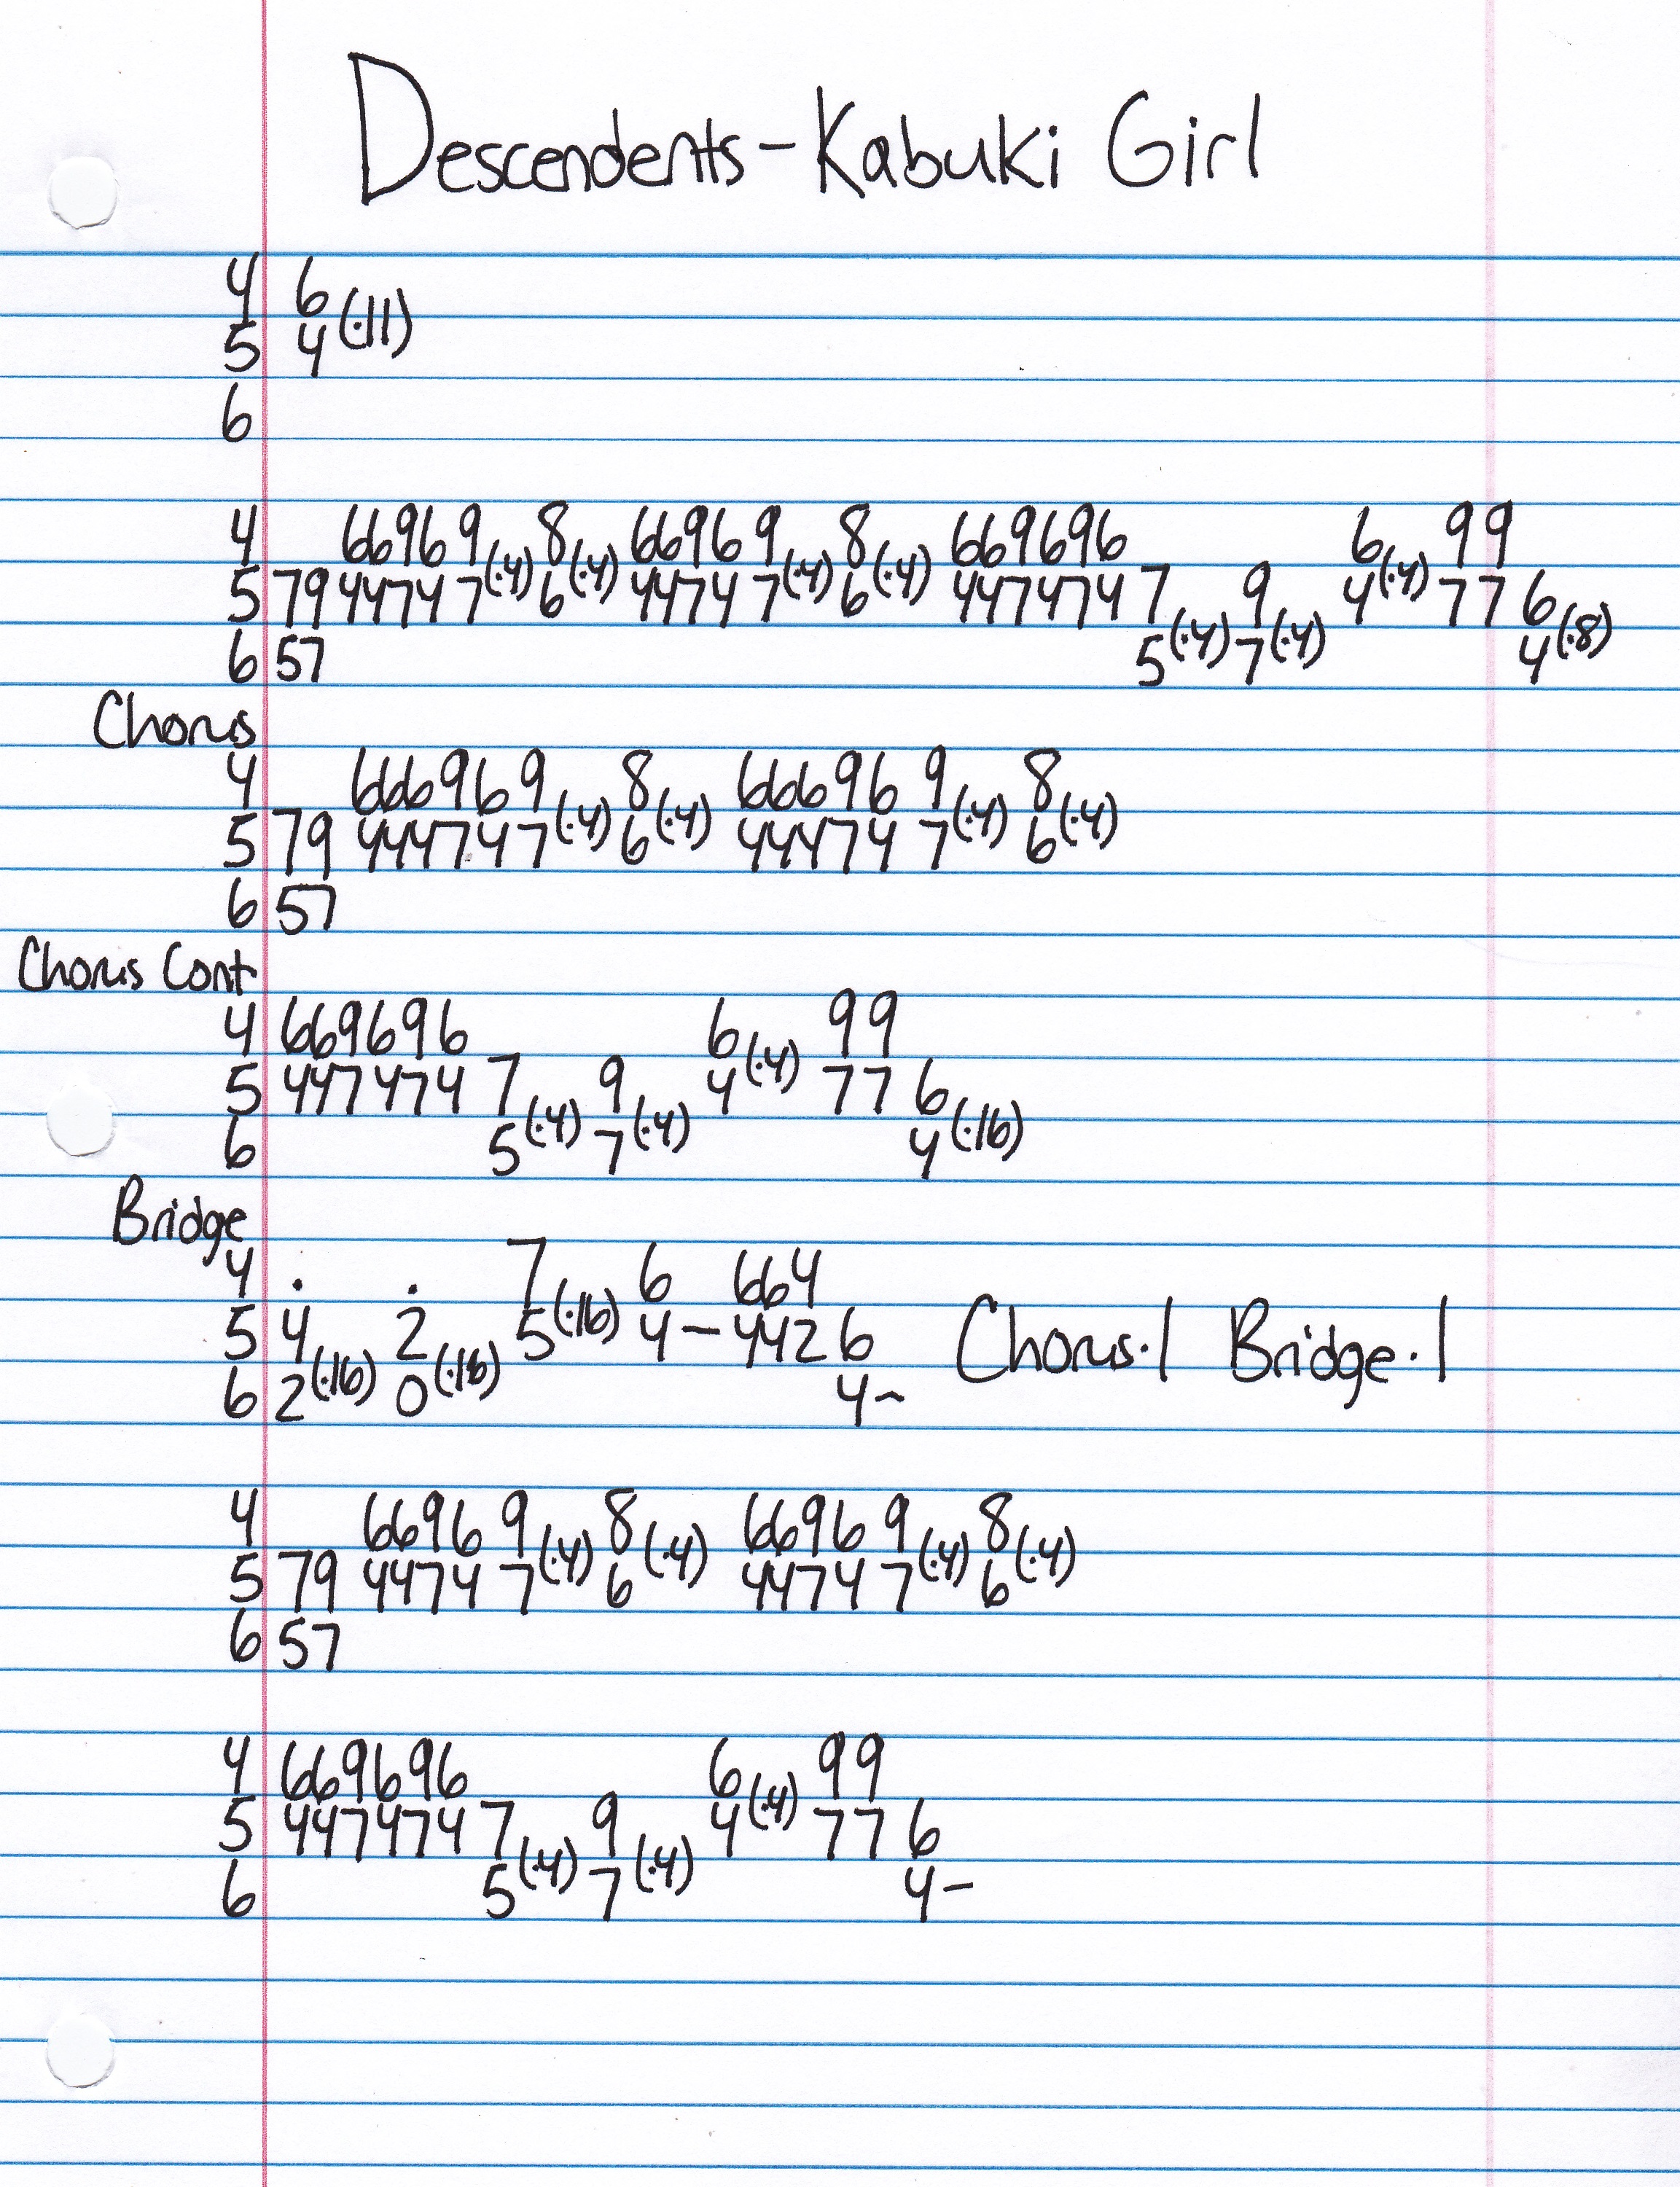 Descendents - Kabuki Girl
4 6
5 4 (·11)
6
4 66969(·4) 8(·4) 66969(·4) 8(·4) 669696 6(·4) 99
5 79 44747 6 44747 6 447474 7 9 4 77 6
6 57 5(·4) 7(·4) 4(·8)
Chorus
4 666969(·4) 8(·4) 66696 9(·4) 8(·4)
5 79 444747 6 44474 7 6
6 57
Chorus Cont
4 669696 6(·4) 99
5 447474 7 9 4 77 6
6 5(·4) 7(·4) 4(·16)
Bridge
4 · · 7(·16) 6 664
5 4 2 5 4 – 442 6 Chorus·1 Bridge·1
6 2(·16) 0(·16) 4~
4 6696 9(·4) 8(·4) 6696 9(·4) 8(·4)
5 79 4474 7 6 4474 7 6
6 57
4 669696 6(·4) 99
5 447474 7 9 4 77 6
6 5(·4) 7(·4) 4–